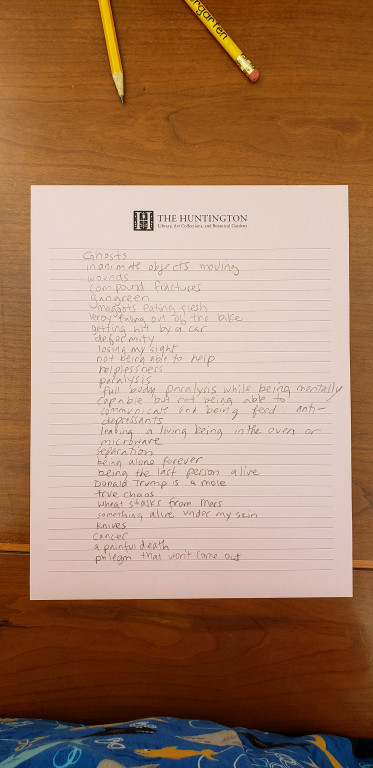 rgarten
THE HUNTINGTON
Library, Art Collections, and Botanical Gardens
Ghosts
inanimate objects moving
wounds
compound fractures
gangreen
maggots eating flesh
leroy falling out of the bike
getting hit by a car
deformity
losing my sight
not being able to help
helplessness
paralysis
full body paralysis while being mentally
capable but not being able to
communicate and being feed anti-
depressants
leaving a living being in the oven or
microwave
separation
being alone forever
being the last person alive
Donald Trump is a mole
true chaos
wheat stalks from Mars
something alive under my skin
knives
cancer
a painful death
phlegm that won't come out